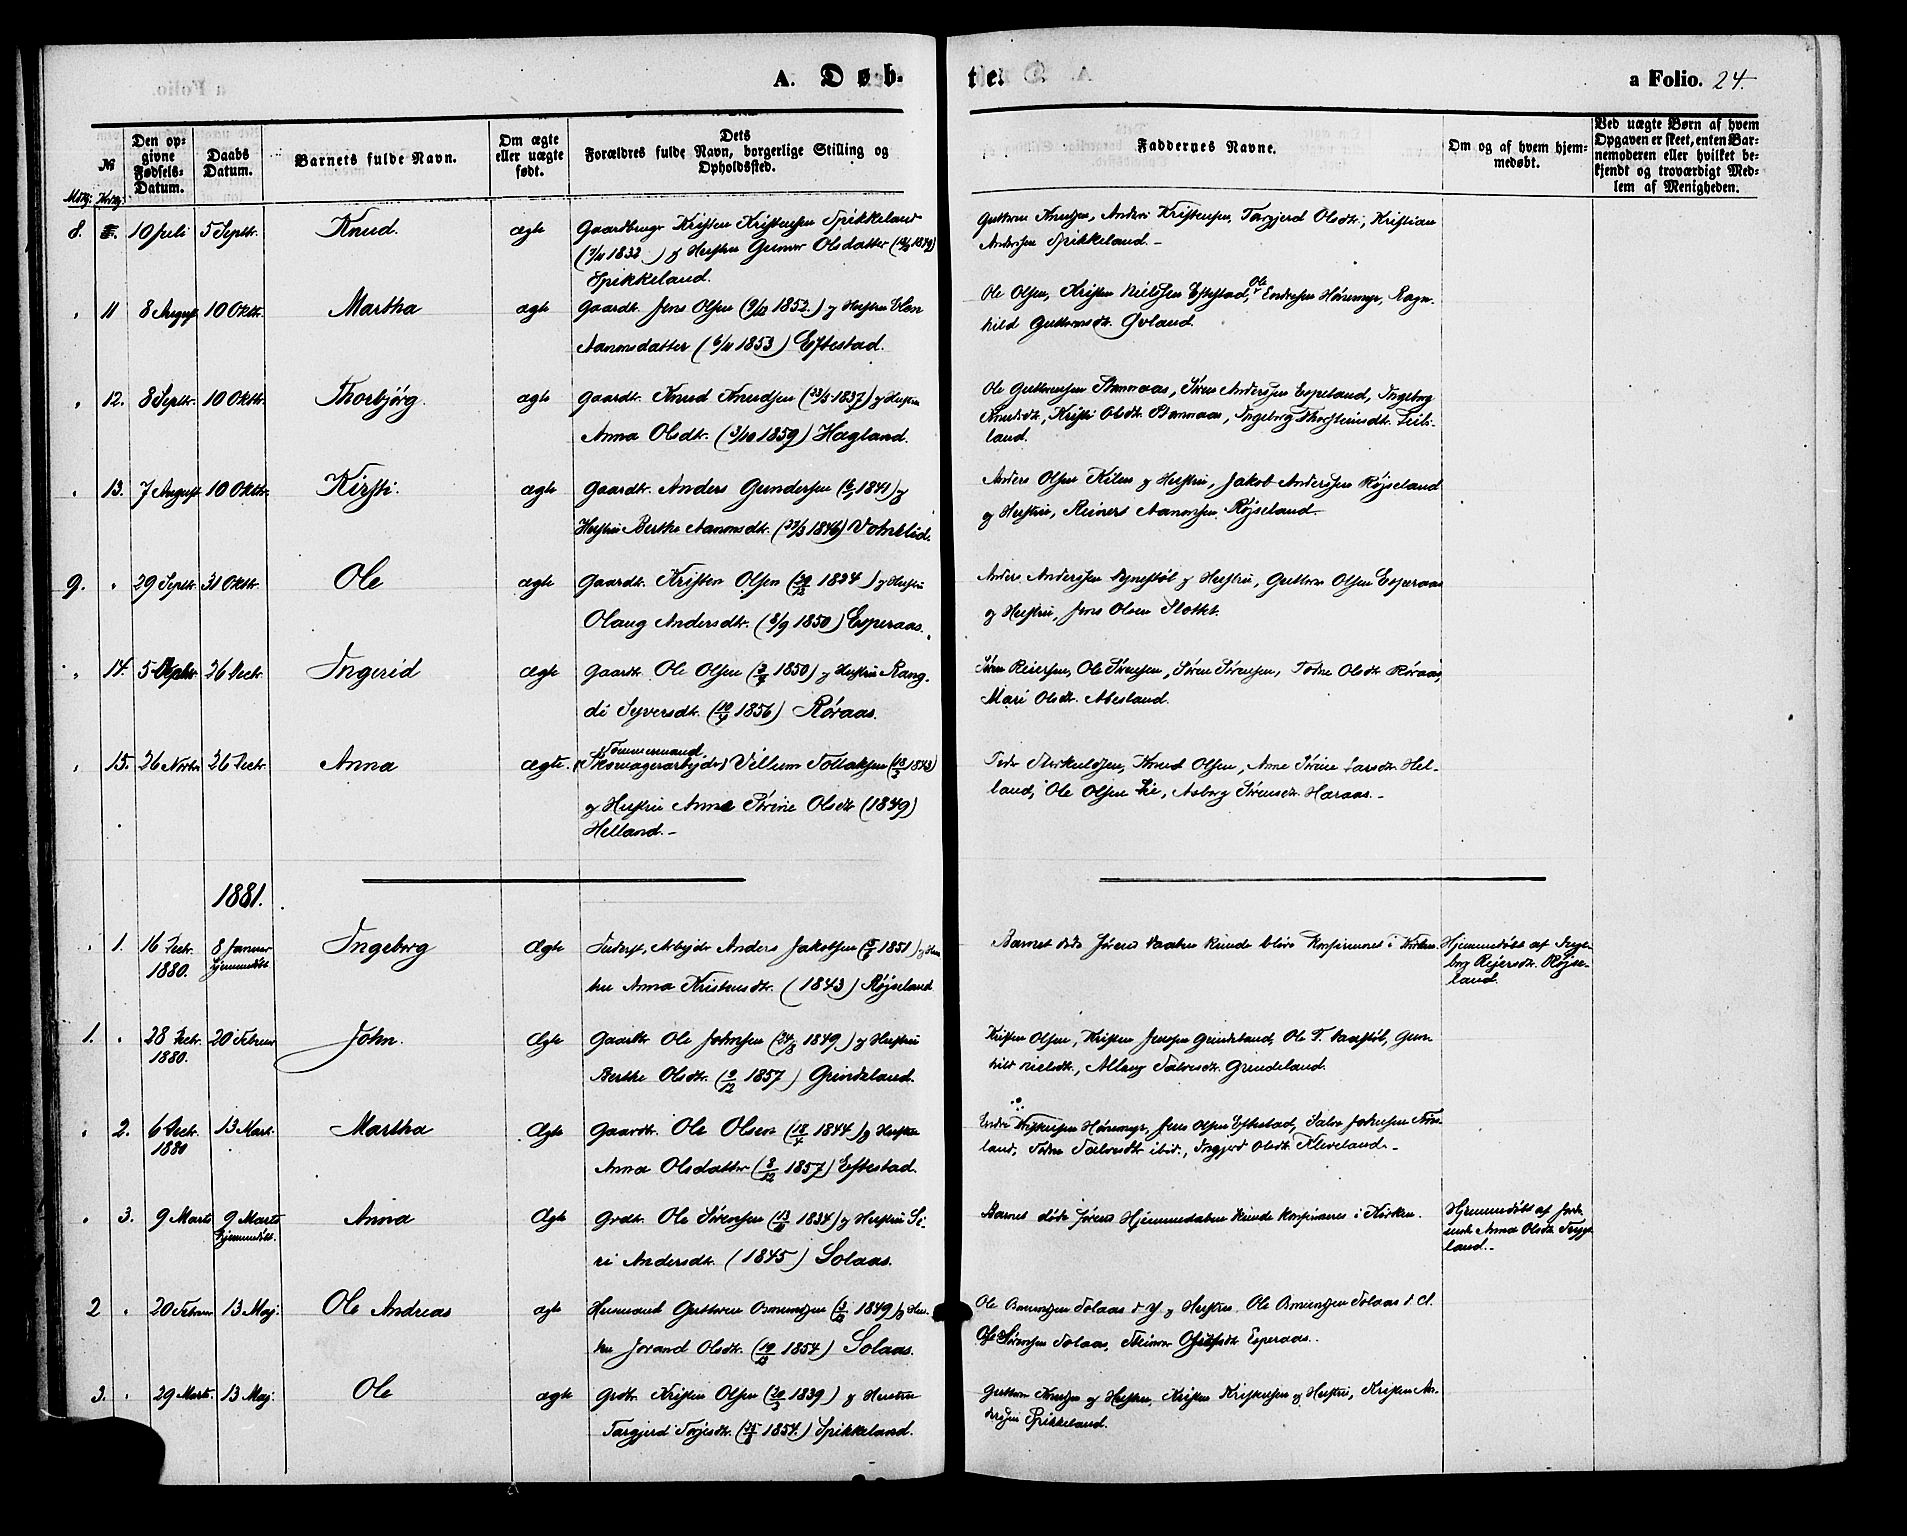 A. Døb-
te.
a Folio. 24.
№
Mkjøn. Kvkj.
Den op-
givne
Fødsels-
Datum.
Daabs
Datum.
Barnets fulde Navn.
Om ægte
eller uægte
født.
Dets
Forældres fulde Navn, borgerlige Stilling og
Opholdssted.
Faddernes Navne.
Om og af hvem hjem-
medøbt.
Ved uægte Børn af hvem
Opgaven er skeet, enten Bar-
nemoderen eller hvilket be-
kjendt og troværdigt Med-
lem af Menigheden.
8. 10 Juli 5 Septr. Knud. ægte Gaardbruger Kristen Kristensen Spikkeland
(1832) og Hustru Gunvor Olsdatter
Spikkeland.
Guttorm Knudsen, Anders Kristensen, Targjerd Olsdt., Kristian
Andersen Spikkeland.-
" 11 8 August 10 Oktbr. Martha ægte Gaardb. Jens Olsen (9/12 1852.) og Hustru
Aanonsdatter (6/11 1853) Eftestad.
Ole Olsen, Kristen Nielsen Eftestad, Ole Endresen Hønemyr, Ragn-
hild Guttormsdt. Øvland.
" 12. 8 Septr. 10 Oktbr. Thorbjörg. ægte Gaardb. Knud Knudsen (23/5 1837) og Hustru
Anna Olsdtr. (3/10 1859) Hægland.
Ole Guttormsen Stemraas, Søren Andersen Espeland, Ingeborg
Knudsdt., Kristi Olsdt. Ingeborg Thorsteinsdt.
land.
" 13. 7 August 10 Oktbr. Kirsti. ægte Gaardb. Anders Gundersen (6/1 1841) og
Hustru Berthe Aanonsdt. (27/3 1846) Vatnelid.
Anders Olsen Kilen og Hustru, Jakob Andersen Røiseland
og Hustru, Reinert Aanonsen Røjseland.-
9. " 29 Septr. 31 Oktbr. Ole ægte Gaardb. Kristen Olsen (20/12 1824) og Hustru
Olaug Andersdtr. (8/9 1850) Esperaas.
Anders Andersen og Hustru, Guttorm Olsen Esperaas
og Hustru, Jens Olsen
" 14. 26 Decbr. Ingerid ægte Gaardb. Ole Olsen (1850) og Hustru Rang-
di Syversdt. (1856) Røraas.
Søren Reiersen, Ole Sørensen, Søren Sørensen, Olsdt. Røraas,
Mari Olsdt. Abesland.
" 15. 26 Novbr. 26 Decbr. Anna ægte. Tømmermand
Villum Tollaksen (1843)
og Hustru Anne Sørine Olsdt (1849)
Helland.-
Knud Olsen, Anne Sørine Larsdt. Hel-
land, Ole Olsen Lie, Asborg Sørensdt. Haraas.-
1881.
" 1. 16 Decbr.
1880.
8 Januar
hjemmedøbt
Ingeborg Ægte Arbejder Anders Jakobsen (1851) og Hus-
tru Anna Kristensdt. (1843) Røjseland
Barnet døde førend Daaben kunde blive konfirmeret i Kirken.
Hjemmedøbt af Inge-
borg Rejersdt. Røjse-
land.
1. " 28 Decbr.
1880.
20 Februar John. Ægte Gaardb. Ole Johnsen (24/8 1849) og Hustru
Berthe Olsdt. (9/12 1857) Grindeland.
Kristen Olsen, Kristen Jensen Grindeland, Ole T. Gun-
hild Nielsdt., Grindeland.
" 2. 6 Decbr.
1880
13 Mart. Martha Ægte Gaardb. Ole Olsen (18/4 1844) og Hustru
Anna Olsdatter (8/12 1857) Eftestad.
Endre Kristensen Hønemyr, Jens Olsen Eftestad, Salve Johnsen
land, Salvesdt. ibid., Ingjerd Olsdt. Kleveland.-
" 3. 9 Marts 9 Marts
hjemmedøbt.
Anna Ægte Grdb. Ole Sørensen (1834) og Hustru Si-
ri Andersdt. (1845) Solaas.
Barnet døde førend Hjemmedaaben kunde konfirmeres i Kirken.
Hjemmedøbt af Jorde-
moder Anna Olsdt. Trygs-
land.-
2 " 20 Februar 13 Maj. Ole Andreas ægte Husmand Guttorm (1849) og Hus-
tru Jorand Olsdt. (1854) Solaas.
Ole Solaas d. Y og Hustru. Ole Solaas d. Æ.
Ole Sørensen Solaas, Esperaas..
3. " 29 Marts. 13 Maj. Ole ægte Grdb. Kristen Olsen (1839) og Hustru
Targjerd Terjesdt. (1854.) Spikkeland.
Guttorm Knudsen og Hustru, Kristen Kristensen og Hustru, Kristen An-
dersen Spikkeland.